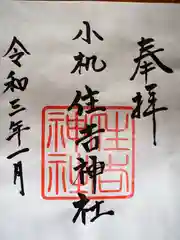 奉拝
小机
住吉神社
令和三年一月
住吉
神社